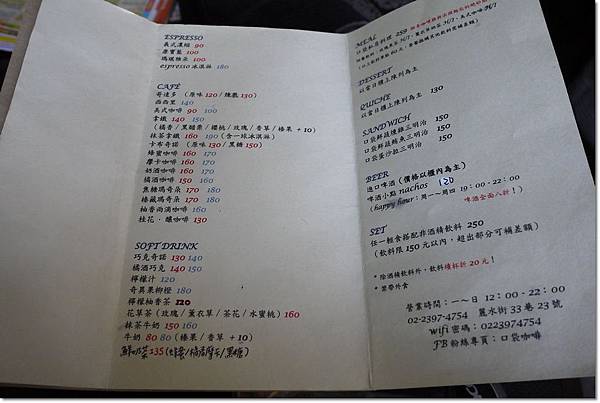 ESPRESSO
義式濃縮 90
康寶藍 100
瑪琪雅朵 100
espresso冰淇淋 180
CAFÉ
哥達多 (原味120/煉戲130)
西西里 140
美式咖啡 90 100
拿鐵 140 150
(橘香/黑糖栗/櫻桃/玫瑰/香草/榛果 +10)
抹茶拿鐵 160 190 (含一球冰淇淋)
卡布奇諾 (原味130/黑糖150)
蜂蜜咖啡 160 170
摩卡咖啡 160 170
奶酒咖啡 160 170
橘酒咖啡 150
焦糖瑪奇朵 170 180
榛藏瑪奇朵 170 180
柚香雨滴咖啡 160
桂花·釀咖啡 130
SOFT DRINK
巧克奇諾 130 140
橘酒巧克 140 150
檸檬汁 120
奇異果柳橙 180
檸檬柚香茶 120
花草茶(玫瑰/薰衣草/茶花/水蜜桃) 160
抹茶牛奶 150 160
牛奶 80 80 (榛果/香草 +10)
鮮奶茶135(蜂蜜/橘香/摩卡/黑糖)
MEAL
口袋私房料理 250
DESSERT
以當日櫃上陳列為主
QUICHE
以當日櫃上陳列為主 130
SANDWICH
口袋鮮蔬燻雞三明治 150
口袋鮮蔬鮪魚三明治 150
口袋蛋沙拉三明治 150
BEER
進口啤酒 (價格以櫃內為主)
啤酒小點 nachos 120
(happy hour:周一~周四 19:00-22:00
啤酒全面八折!)
SET
任一輕食搭配非酒精飲料 250
(飲料限150元以內,超出部分可補差額)
* 除酒精飲料外,飲料續杯折20元!
* 禁帶外食
營業時間:一~日 12:00-22:00
02-2397-4754 麗水街33巷23號
wifi 密碼:0223974754
FB粉絲專頁:口袋咖啡